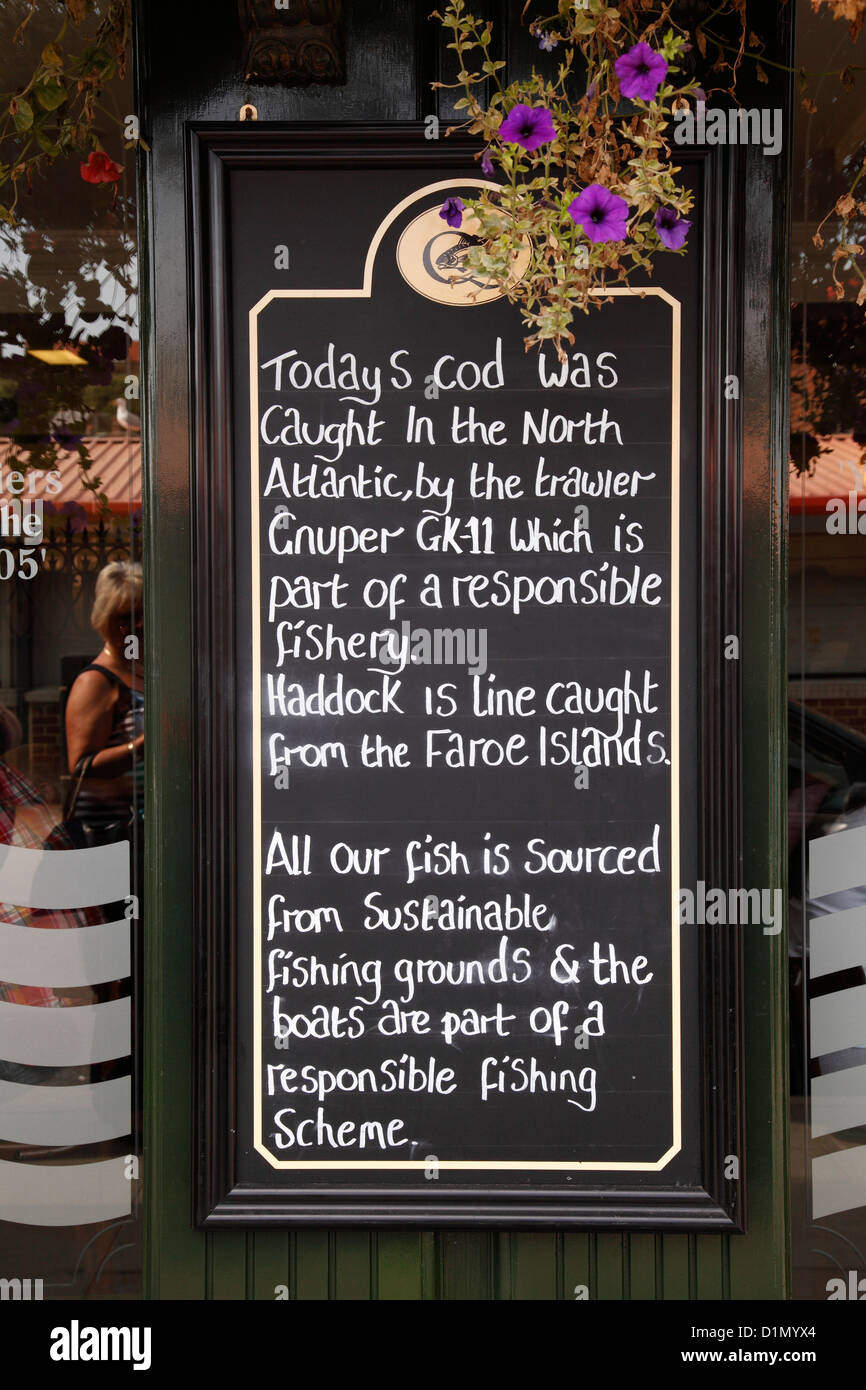 Todays Cod Was
Caught In the North
Atlantic, by the trawler
Gnuper GK-11 Which is
part of a responsible
fishery.
Haddock is line caught
from the Faroe Islands.
All Our fish is Sourced
from Sustainable
fishing grounds & the
boats are part of a
responsible fishing
Scheme.
iers
he
05'
alamy
a
Image ID: D1MYX4
www.alamy.com